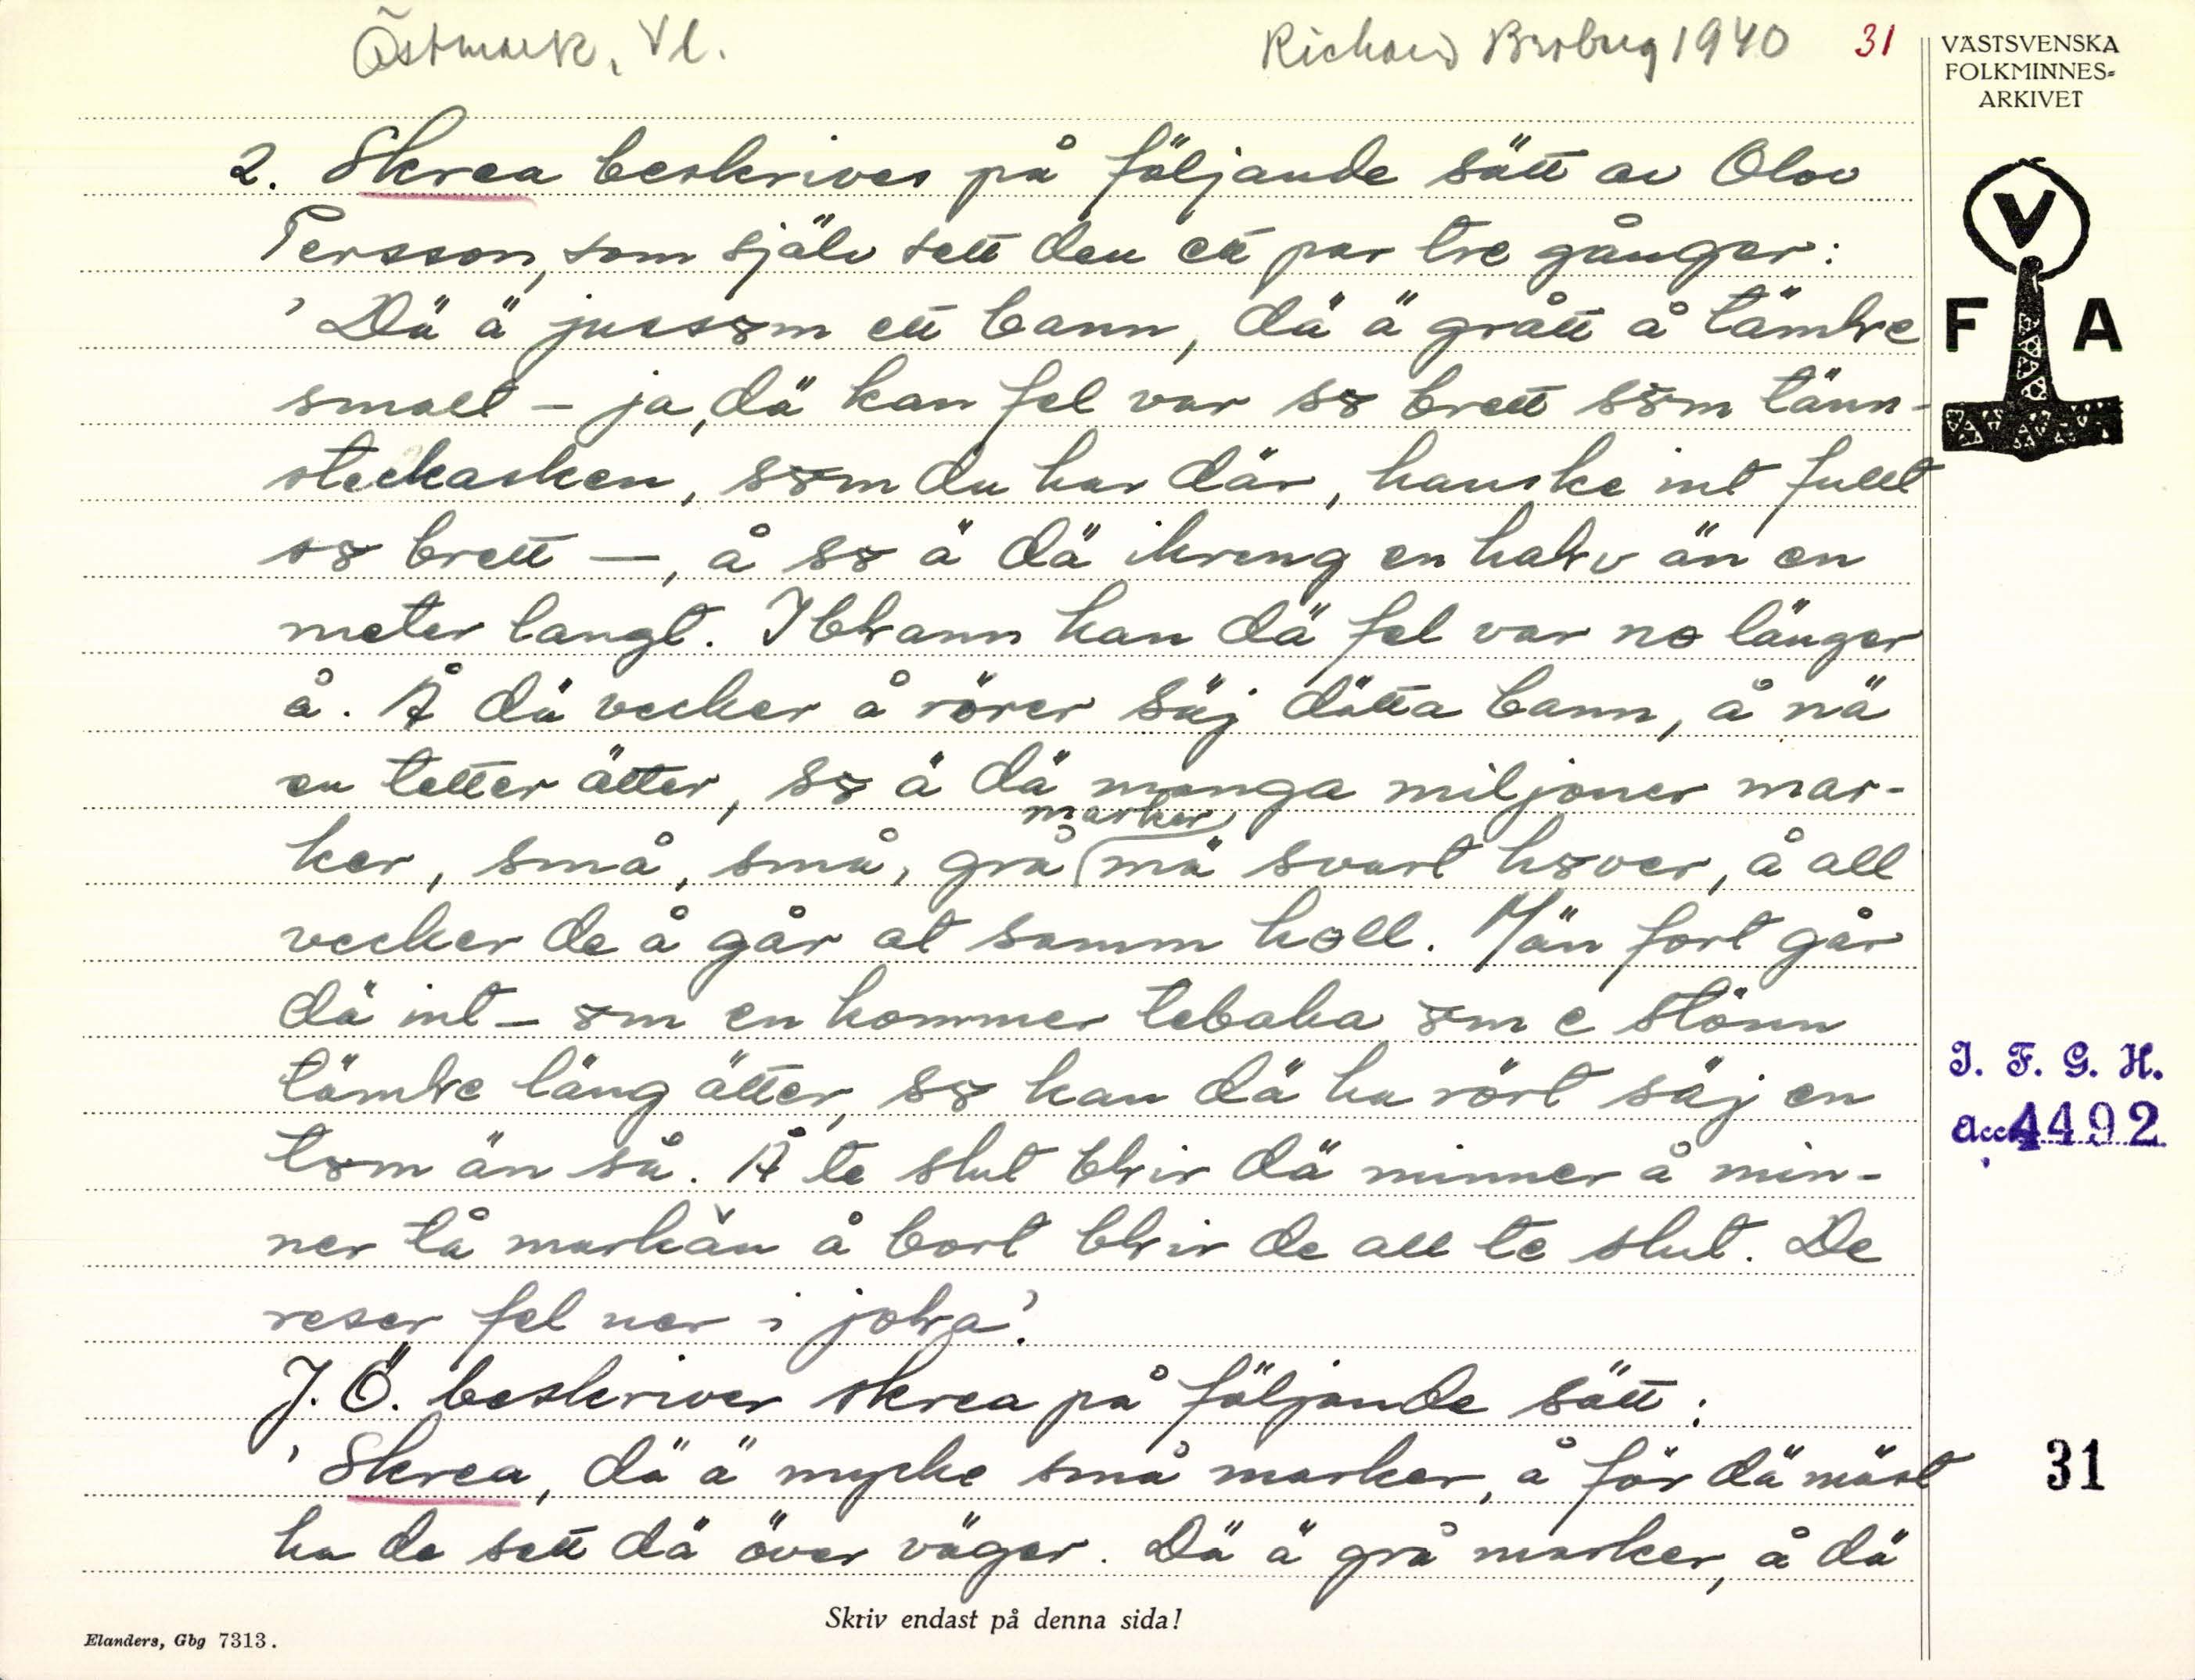 Östmark, Vl.
Richard Broberg 1940
31
VÄSTSVENSKA
FOLKMINNES-
ARKIVET
V
F A
2. Skrea beskrives på följande sätt av Olov
Persson, som själv sett den ett par tre gånger:
'Dä ä jussôm ett bann, dä ä grått å tämle
smalt – ja, dä kan fel var sô brett sôm tänn-
steckasken, sôm du har där, kanske int fullt
sô brett –, å sô ä dä ikreng en halv än en
meter langt. Iblann kan dä fel var no länger
å. Å dä vecker å rörer säj dätta bann, å nä
en tetter ätter, sô ä dä manga miljoner mar-
ker, små, små, grå marker mä svart hôver, å all
vecker de å går at samm holl. Män fort går
dä int – ôm en kommer tebaka ôm e stönn
tämle läng ätter, sô kan dä ha rört säj en
tôm än så. Å te slut blir dä minner å min-
ner tå markän å bort blir de all te slut. De
reser fel ner i jola'.
J. Ö. beskriver skrea på följande sätt:
'Skrea, dä ä myche små marker, å för dä mäst
ha de sett dä över väger. Dä ä grå marker, å dä
I. F. G. H.
acc 4492
31
Skriv endast på denna sida!
Elanders, Gbg 7313.